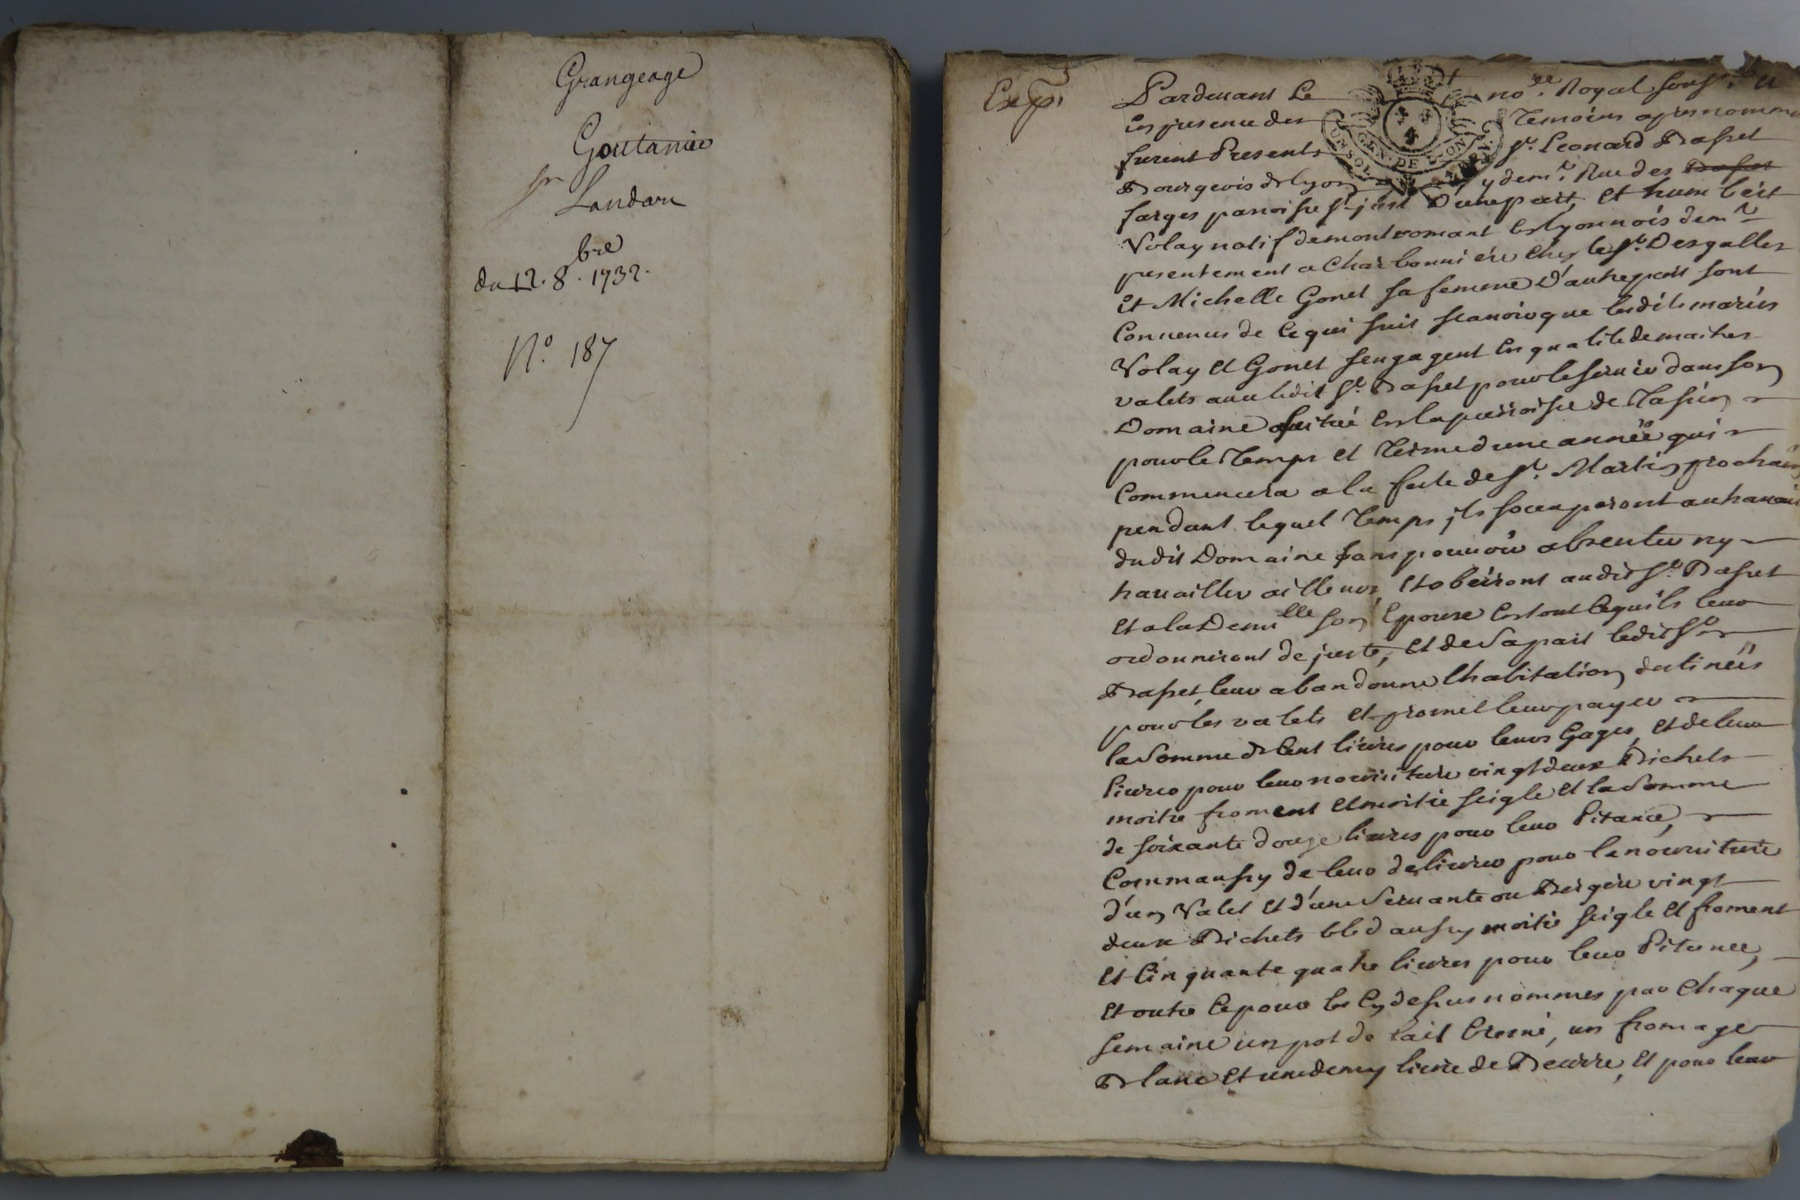 Grangeage
Goutanier
Sr
Landon
bre
du 12. 8. 1732.
No. 187
Exp.
Pardevant Le no.re Royal soubs.né
En presence des Temoins apres nommes
furent Presents Sr. Leonard Basset
Bourgeois de Lyon y dem.t Rue des
farges paroisse St. just D'une part, Et humbert
Volay natif de montromant En lyonnois dem.t
presentement a Charbonniére Chez le Sr. Desgalles
Et Michelle Gonet sa femme D'autre part sont
Convenus de Ce qui suit scavoir que lesdits mariés
Volay Et Gonet sengagent En qualite de maitres
valets avec ledit Sr. Basset pour le servir dans son
Domaine situé En la parroisse de Tassin
pour le Temps et Terme d'une année qui
Commencera a la feste de St. Martin prochain
pendant lequel Temps ils soccuperont au travail
dudit Domaine sans pouvoir absenter ny
travailler ailleurs, Et obéiront audit Sr. Basset
Et a la Demlle son Epouse En tout Ce quils leur
ordonneront de juste, Et de sa part ledit Sr.
Basset leur abandonne l'habitation destinées
pour les valets Et promet leur payer
la Somme de Cent livres pour leurs Gages, Et de leur
livrer pour leur nourriture vingt deux Bichets
moitie froment Et moitie seigle Et la Somme
de soixante douze livres pour leur Pitance,
Comm'aussy de leur deslivrer pour la nourriture
d'un Valet Et d'une Servante ou Bergere vingt
deux Bichets bled aussy moitie seigle Et froment
Et Cinquante quatre livres pour leur Pitance,
Et outre Ce pour les Cy dessus nommes par Chaque
semaine un pot de lait Cremé, un fromage
Blanc Et une demy livre de Beurre, Et pour leur